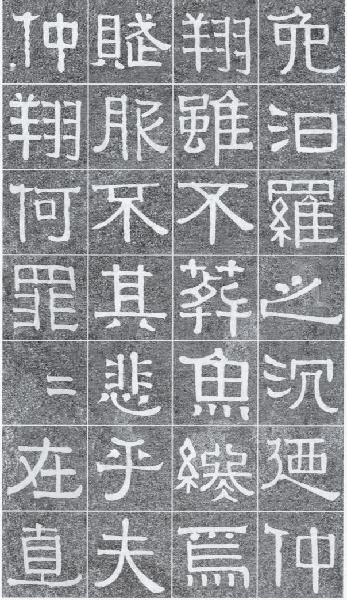 免汨羅之沉迺仲
翔雖不葬魚焉
賦服不其悲乎夫
仲翔何罪=在直